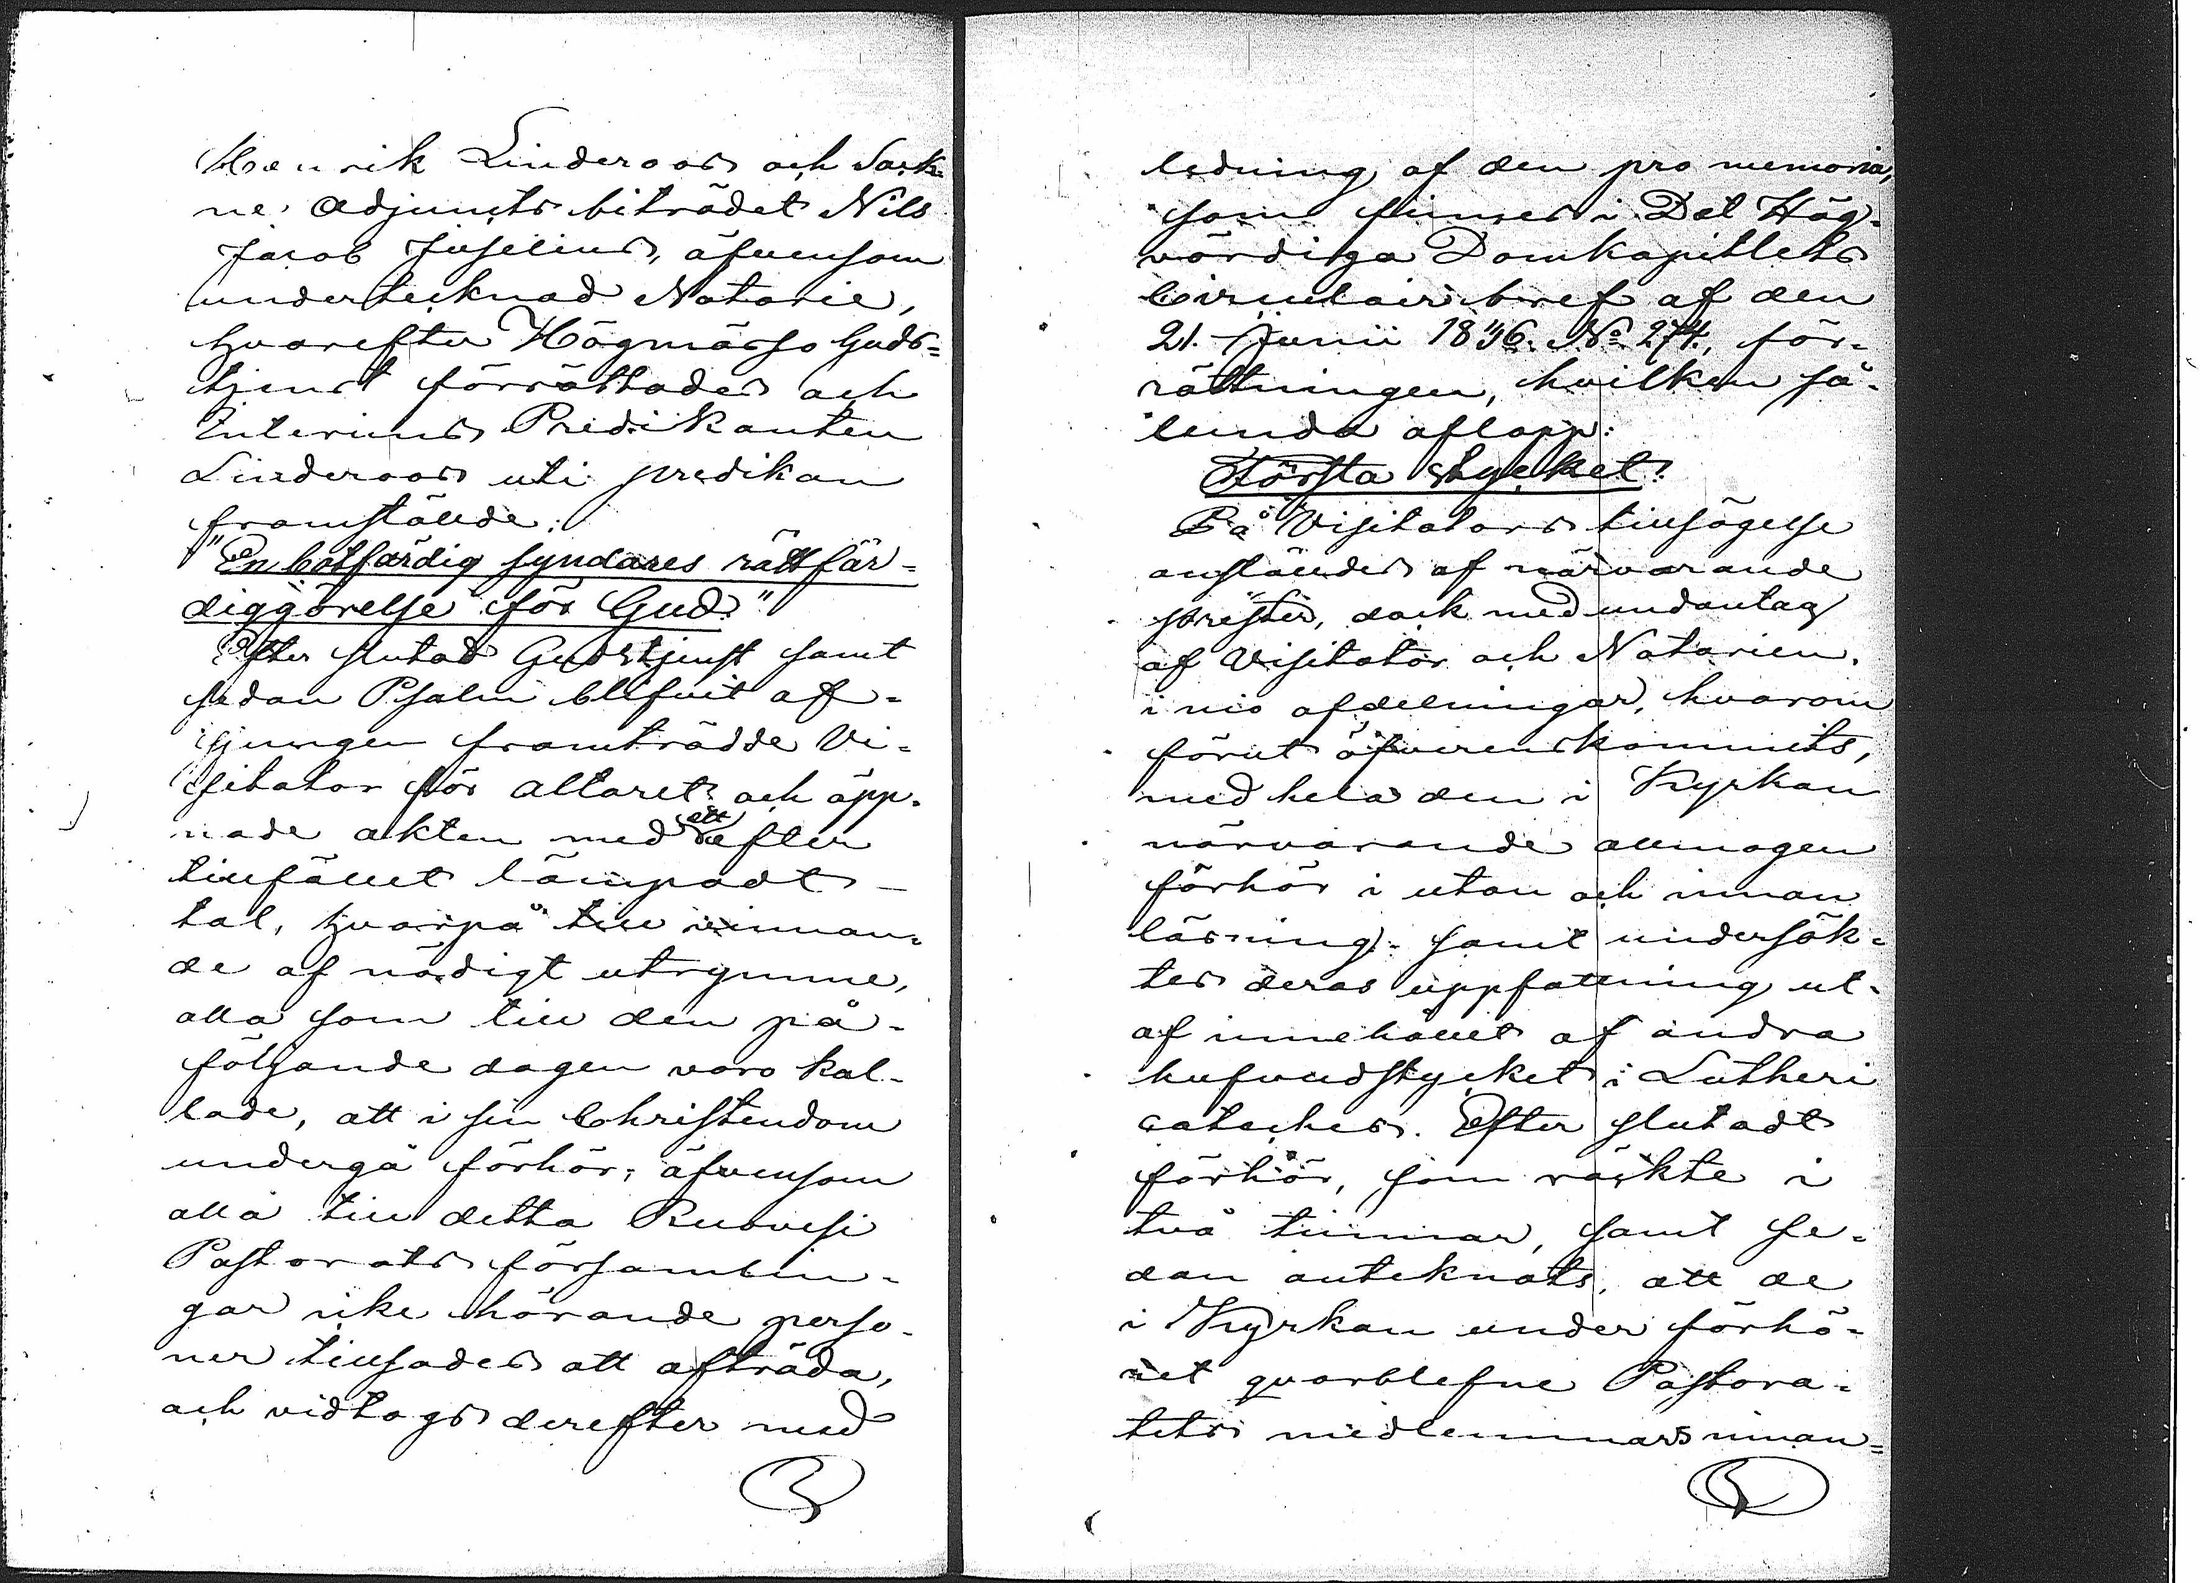 Henrik Linderoos och Sock-
ne Adjunkts biträdet Nils
Jacob Juselius, äfvensom
undertecknad Notarie,
hvarefter Högmässo Guds-
tjenst förrättades och
Interims Predikanten
Linderoos uti predikan
framstälde:
"En botfärdig syndares rättfär-
diggörelse för Gud."
Efter slutad Gudstjenst samt
sedan Psalm blifvit af-
sjungen framträdde Vi-
sitator för altaret och öpp-
nade akten med ett efter
tillfället lämpadt
tal, hvarpå till vinnan-
de af nödigt utrymme,
alla som till den på-
följande dagen voro kal-
lade, att i sin Christendom
undergå förhör, äfvensom
alla till detta Ruovesi
Pastorats församlin-
gar icke hörande perso-
ner tillsades att afträda,
och vidtogs derefter med
ledning af den pro memoria,
som finnes i Det Hög-
vördiga Domkapitlets
Circulair bref af den
21. Junii 1836. No 274., för-
rättningen, hvilken så-
lunda aflopp:
Första stycket:
På Visitators tillsägelse
anstäldes af närvarande
prester, dock med undantag
af Visitator och Notarien,
i nio afdelningar, hvarom
förut öfverenskommits,
med hela den i Kyrkan
närvarande allmogen
förhör i utan och innan
läsning, samt undersök-
tes deras uppfattning ut-
af innehållet af andra
hufvudstycket i Lutheri
cateches. Efter slutadt
förhör, som räckte i
två timmar, samt se-
dan anteknats, att de
i Kyrkan under förhö-
ret qvarblefne Pastora-
tets medlemmars innan-